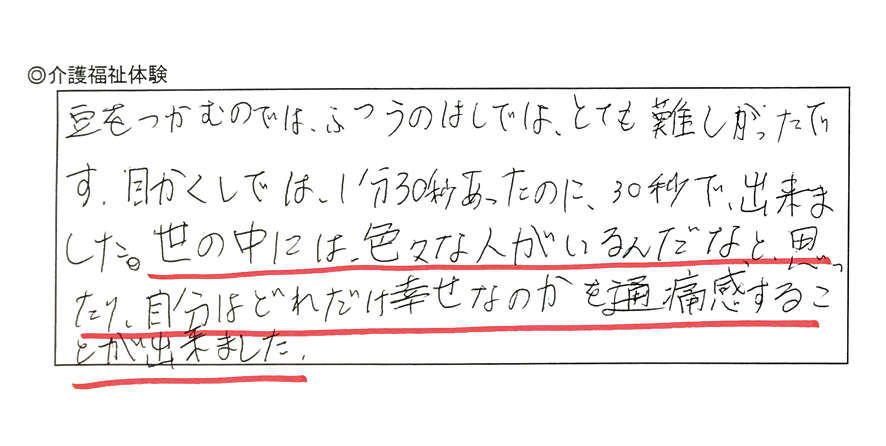 ◎介護福祉体験
豆をつかむのでは、ふつうのはしでは、とても難しかったで
す。目かくしでは、1分30秒あったのに、30秒で、出来ま
した。世の中には、色々な人がいるんだな、と、思っ
たり、自分はどれだけ幸せなのかを通痛感するこ
とが出来ました。